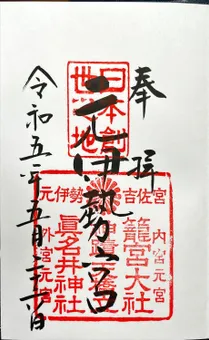 奉拝
日本創世之地
元伊勢宮
元伊勢 吉佐宮
内宮元宮
籠宮大社
眞名井神社
外宮元宮
令和五年五月三十日